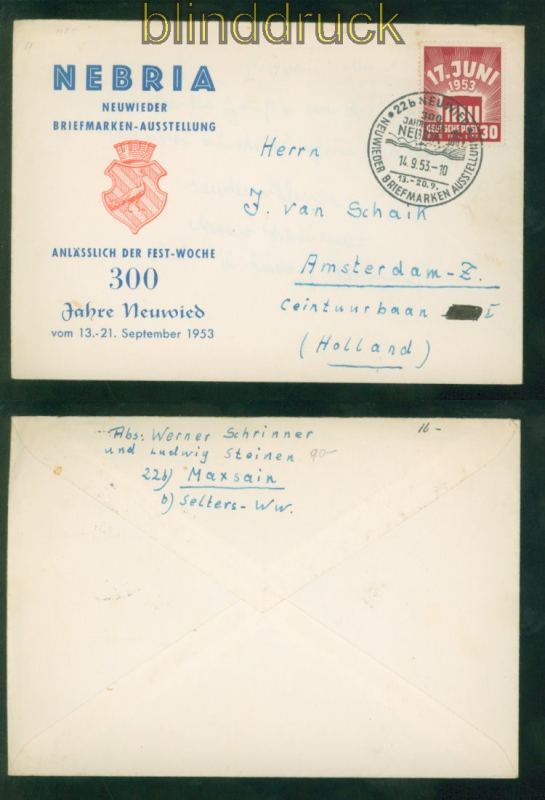 blinddruck
NEBRIA
NEUWIEDER
BRIEFMARKEN-AUSSTELLUNG
ANLÄSSLICH DER FEST-WOCHE
300
Jahre Neuwied
vom 13.-21. September 1953
17. JUNI
1953
DEUTSCHE POST
30
22b NEUWIED
300
JAHRE
NEBRIA
14.9.53-10
13.-20.9.
NEUWIEDER BRIEFMARKEN AUSSTELLUNG
Herrn
J. van Schaik
Amsterdam-Z.
Ceintuurbaan I
(Holland)
Abs: Werner Schrinner 16-
und Ludwig Steinen 90-
22b) Maxsain
b) Selters-Ww.